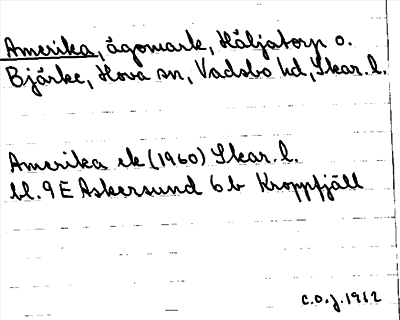 Amerika, ägomark, Häljatorp o.
Bjärke, Hova sn, Vadsbo hd, Skar. l.
Amerika ek (1960) Skar. l.
bl. 9 E Askersund 6 b Kroppfjäll
C.O.J. 1962